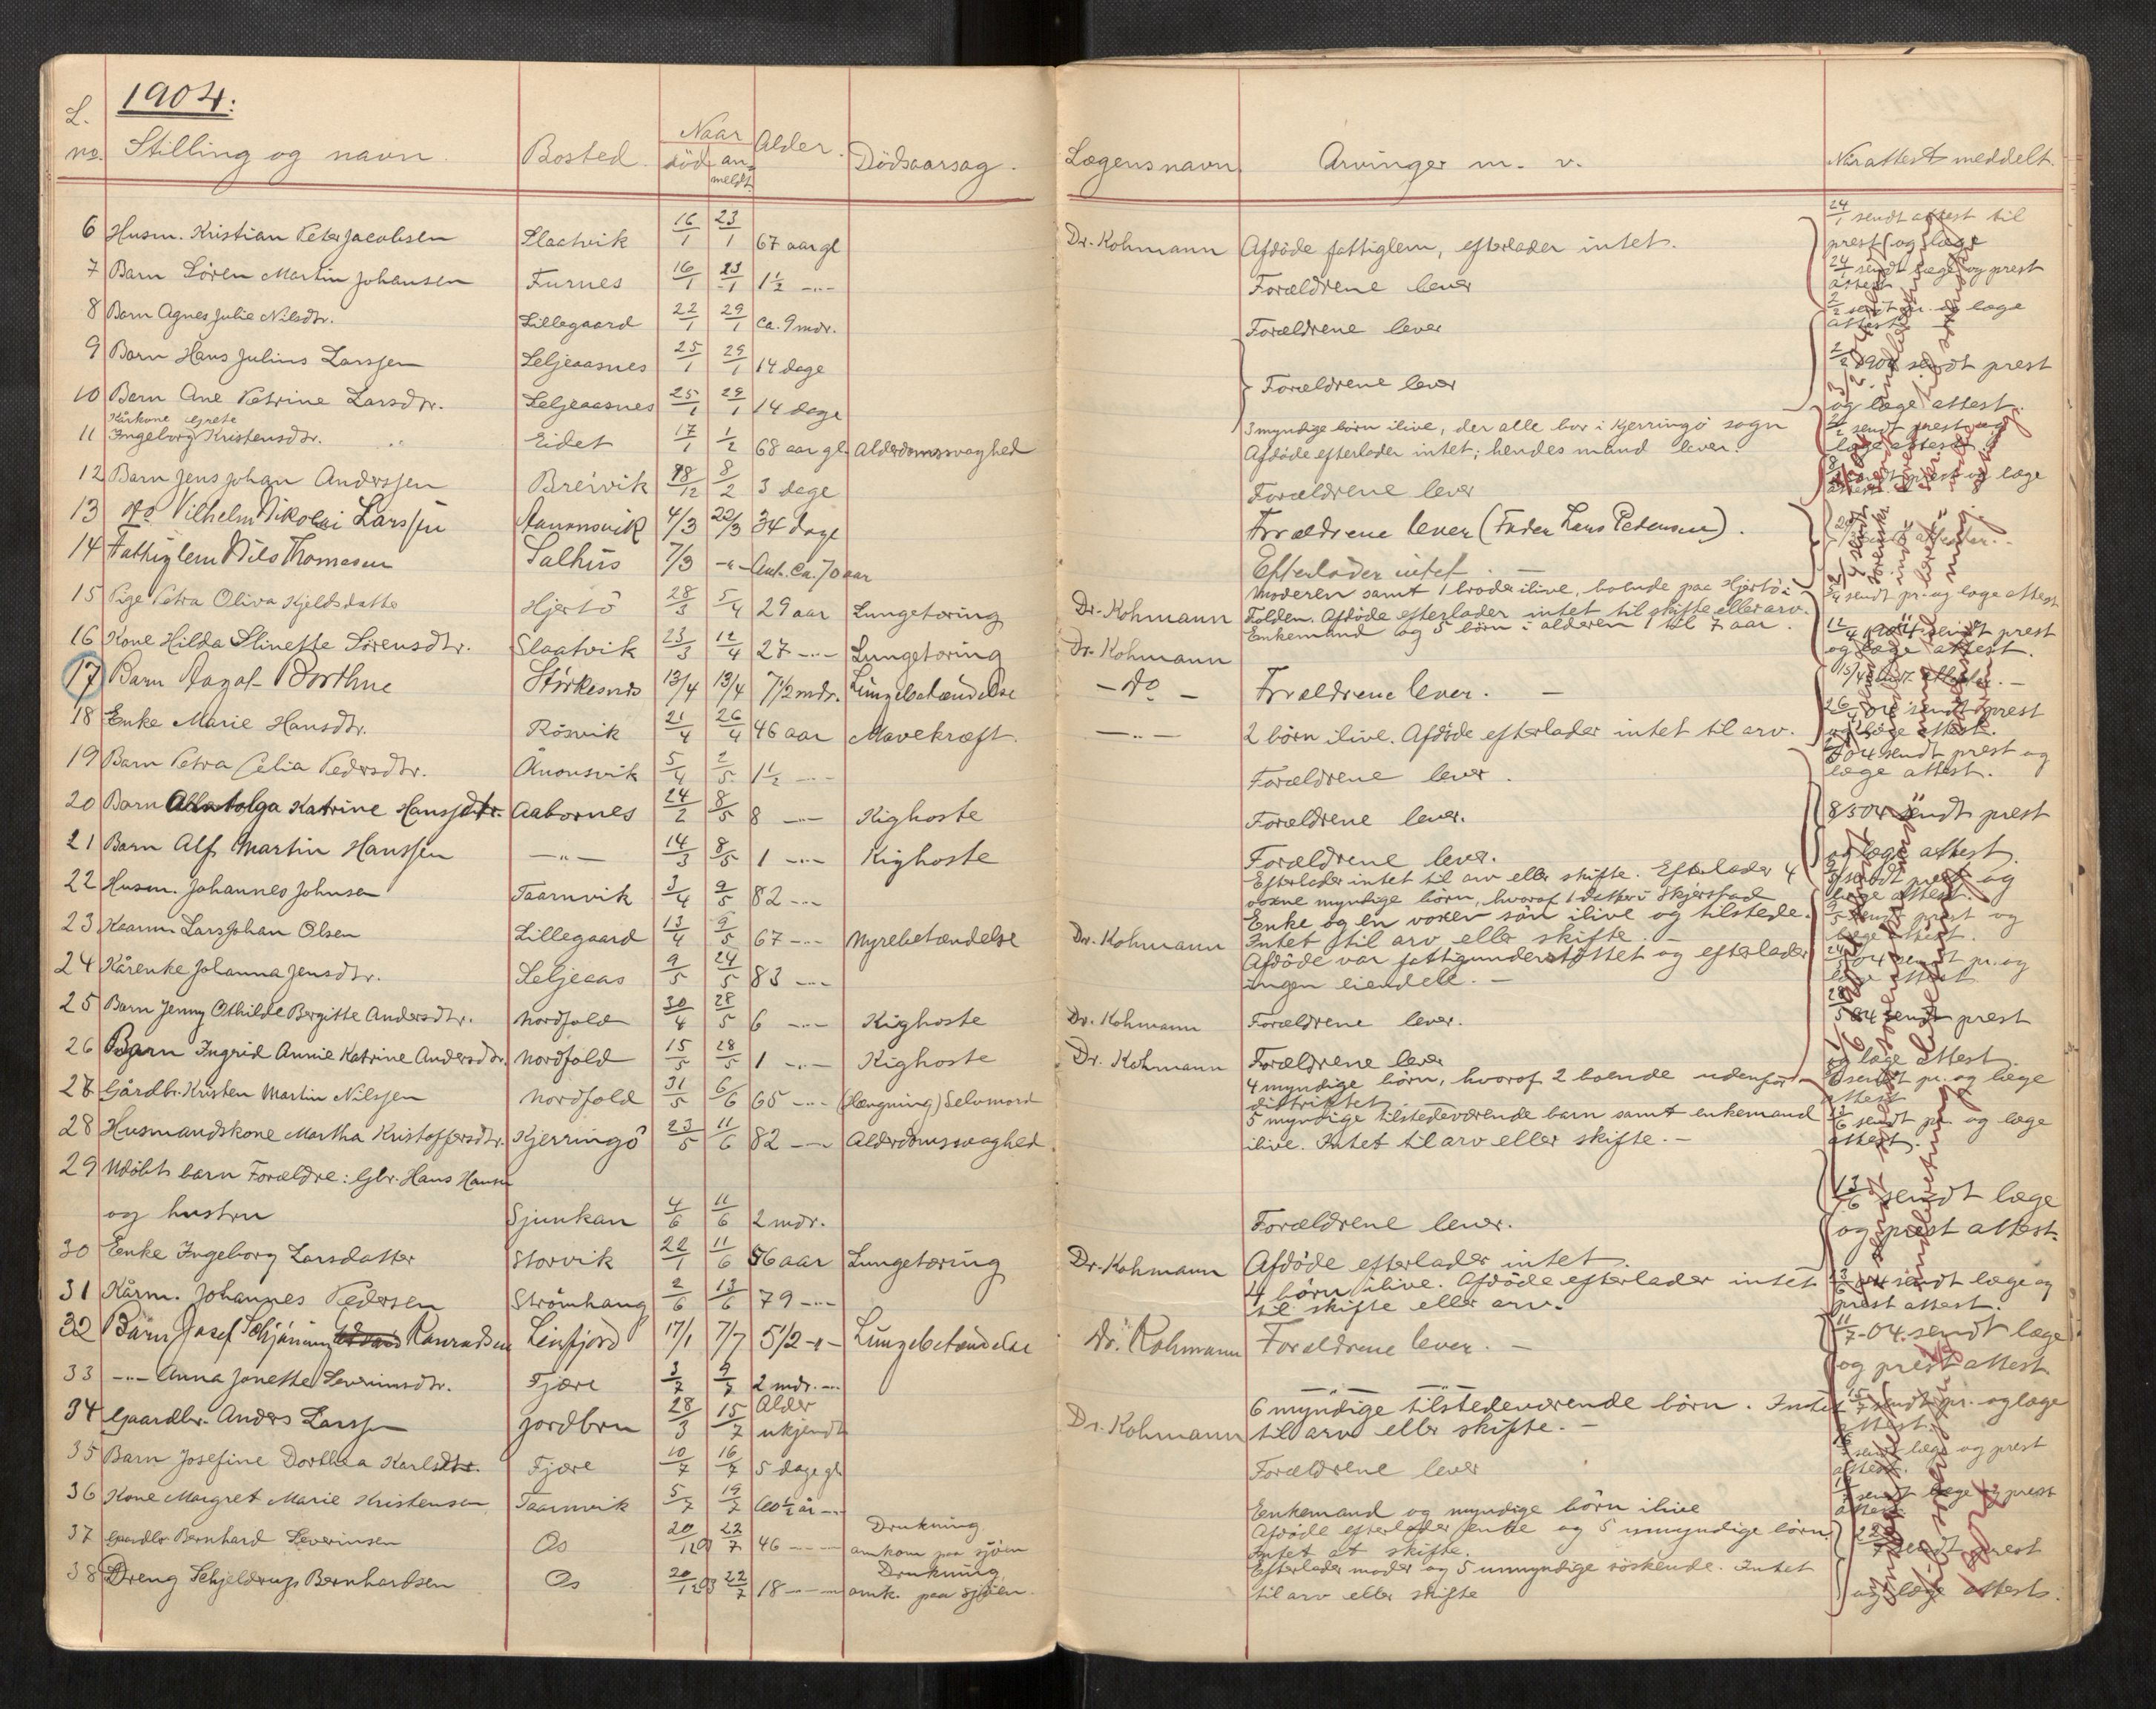 1904.
L. no. Stilling og navn. Bosted. Naar död an-meldt. Alder. Dödsaarsag. Lægens navn. Arvinger m. v. Når attest meddelt.
6 Husm. Kristian Peter Jacobsen Slaatvik 16/1 23/1 67 aar gl Dr. Kohmann Afdöde fattiglem, efterlader intet. 24/1 sendt attest til prest og læge
7 Barn Sören Martin Johansen Furnes 16/1 23/1 1½ -"- Forældrene lever 24/1 sendt læge og prest attest
8 Barn Agnes Julie Nilsdtr. Lillegaard 22/1 29/1 ca. 9 mdr. Forældrene lever 2/2 sendt pr. og læge attest
9 Barn Hans Julius Larssen Seljeaasnes 25/1 29/1 14 dage
Forældrene lever 2/2 1904 sendt prest og læge attest.
10 Barn Ane Petrine Larsdtr. Seljeaasnes 25/1 29/1 14 dage
11 Kårkone Ingeborg Grete Kristensdtr. Eidet 17/1 1/2 68 aar gl. Alderdomssvaghed 3 myndige börn ilive, der alle bor i Kjerringö sogn
Afdöde efterlader intet; hendes mand lever. 2/2 sendt prest og læge attest
12 Barn Jens Johan Anderssen Breivik 28/12 8/2 3 dage Forældrene lever 8/2 sendt prest og læge attest
13 do Vilhelm Nikolai Larssen Aanonsvik 4/3 22/3 34 dage Forældrene lever (Fader Lars Pedersen).
14 Fattiglem Nils Thomesen Salhus 7/3 -"- Ant. ca. 70 aar Efterlader intet. -
15 Pige Petra Oliva Kjeldsdatter Hjertö 28/3 5/4 29 aar Lungetæring Dr. Kohmann Moderen samt 1 broder ilive, boende paa Hjertö i
Folden. Afdöde efterlader intet til skifte eller arv. sendt pr. og læge attest
16 Kone Hilda Elinette Sörensdtr. Slaatvik 23/3 12/4 27 -"- Lungetæring Dr. Kohmann Enkemand og 5 börn i alderen 1 til 7 aar. 12/4 1904 sendt prest og læge attest.
17 Barn Dagof Borthne Störkesnes 13/4 13/4 7½ mdr. Lungebetændelse - do - Forældrene lever. -
18 Enke Marie Hansdtr. Rösvik 21/4 26/4 46 aar Mavekræft. -"- 2 börn ilive. Afdöde efterlader intet til arv. 26/4 04 sendt prest og læge attest.
19 Barn Petra Celia Pedersdtr. Ånonsvik 5/4 2/5 1½ -"- Forældrene lever. 04 sendt prest og læge attest.
20 Barn Olga Katrine Hanssdtr. Aabornes 24/2 8/5 8 -"- Kighoste Forældrene lever. 8/5 04 sendt prest
21 Barn Alf Martin Hanssen -"- 14/3 8/5 1 -"- Kighoste Forældrene lever. og læge attest.
22 Husm. Johannes Johnsen Taarnvik 3/4 9/5 82 -"- Efterlader intet til arv eller skifte. Efterlader 4
voxne myndige börn, hvoraf 1 datter i Skjerstad 9/5 sendt prest og læge attest.
23 Kaarm. Lars Johan Olsen Lillegaard 13/4 9/5 67 -"- Nyrebetændelse Dr. Kohmann Enke og en voxen sön ilive og tilstede.
Intet til arv eller skifte. - 9/5 sendt prest og læge attest.
24 Kårenke Johanna Jensdtr. Seljeaas 9/5 24/5 83 -"- Afdöde var fattigunderstöttet og efterlader
ingen eiendele. - 24/5 04 sendt pr. og læge attest
25 Barn Jenny Othilde Bergitte Andersdtr. Nordfold 30/4 28/5 6 -"- Kighoste Dr. Kohmann Forældrene lever. 28/5 04 sendt prest
26 Barn Ingrid Annie Katrine Andersdtr. Nordfold 15/5 28/5 1 -"- Kighoste Dr. Kohmann Forældrene lever og læge attest.
27 Gårdbr. Kristen Martin Nilssen Nordfold 31/5 6/6 65 -"- (Hængning) Selvmord 4 myndige börn, hvoraf 2 boende udenfor
distriktet sendt pr. og læge attest
28 Husmandskone Martha Kristoffersdtr. Kjerringö 23/5 11/6 82 -"- Alderdomssvaghed 5 myndige tilstedeværende barn samt enkemand
ilive. Intet til arv eller skifte. - 13/6 sendt pr. og læge attest.
29 Udöbt barn Forældre: Gbr. Hans Hansen
og hustru Sjunkan 4/6 11/6 2 mdr. Forældrene lever. 13/6 sendt læge
30 Enke Ingeborg Larsdatter Storvik 22/1 11/6 56 aar Lungetæring Dr. Kohmann Afdöde efterlader intet. og prest attest.
31 Kårm. Johannes Pedersen Strömhaug 2/6 13/6 79 -"- 4 börn ilive. Afdöde efterlader intet
til skifte eller arv. 13/6 04 sendt læge og prest attest.
32 Barn Josef Schjöning Konradsen Leinfjord 17/1 7/7 5½ -"- Lungebetændelse Dr. Kohmann Forældrene lever. - 11/7-04. sendt læge
33 -"- Anna Jonette Severinsdtr. Fjære 3/7 9/7 2 mdr. -"- og prest attest
34 Gaardbr. Anders Larssen Jordbru 28/3 15/7 Alder ukjendt Dr. Kohmann 6 myndige tilstedeværende börn. Intet
til arv eller skifte. - 15/7 sendt pr. og læge attest.
35 Barn Josefine Dorthea Karlsdtr. Fjære 10/7 16/7 5 dage gl. Forældrene lever 16/7 sendt læge og prest attest.
36 Kone Margret Marie Kristensen Taarnvik 5/7 19/7 60½ år -"- Enkemand og myndige börn ilive sendt læge og prest attest.
37 Gaardbr. Bernhard Severinsen Os 20/12 03 22/7 46 -"- Drukning omkom paa sjöen Afdöde efterlader enke og 5 unmyndige börn.
Intet at skifte. 22/7 sendt prest
38 Dreng Schjeldrup Bernhardsen Os 20/12 03 22/7 18 -"- Drukning, omk. paa sjöen. Efterlader moder og 5 unmyndige söskende. Intet
til arv eller skifte og læge attest.